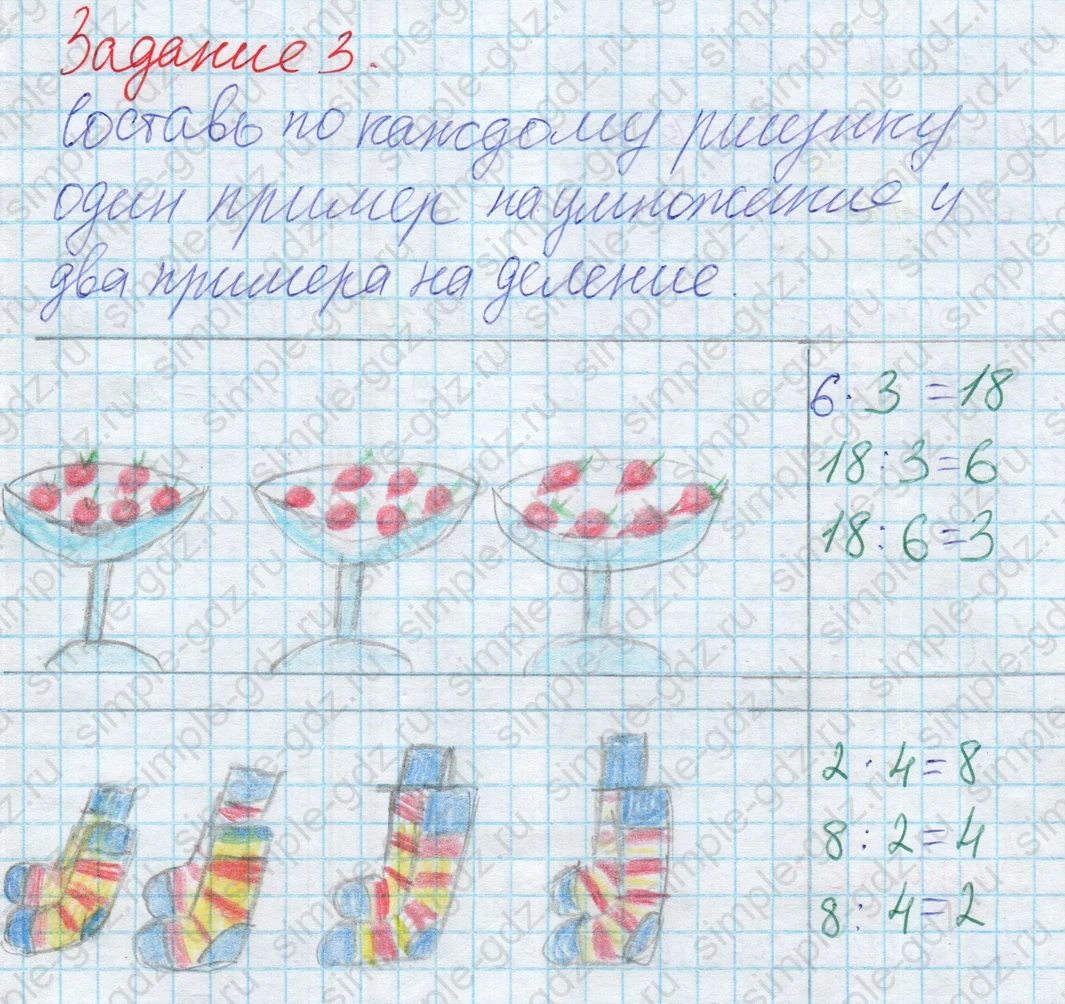 Задание 3.
Составь по каждому рисунку
один пример на умножение и
два примера на деление.
6 · 3 = 18
18 : 3 = 6
18 : 6 = 3
2 · 4 = 8
8 : 2 = 4
8 : 4 = 2
simple-gdz.ru